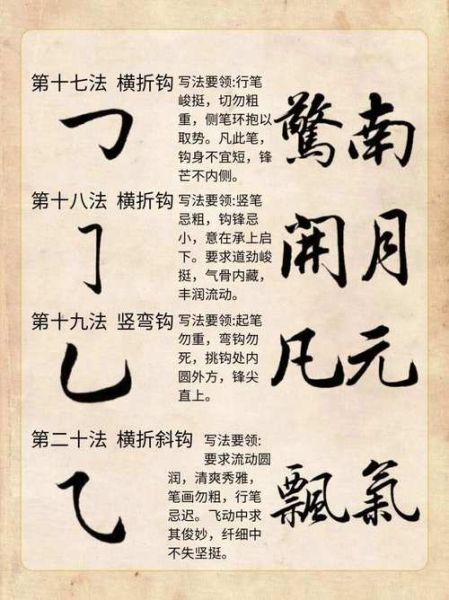 第十七法 横折钩
写法要领:行笔
峻挺，切勿粗
重，侧笔环抱以
取势。凡此笔，
钩身不宜短，锋
芒不内侧。
驚南
第十八法 横折钩
写法要领:竖笔
忌粗，钩锋忌
小，意在承上启
下。要求道劲峻
挺，气骨内藏，
丰润流动。
開月
第十九法 竖弯钩
写法要领:起笔
勿重，弯钩勿
死，挑钩处内
圆外方，锋尖
直上。
凡元
第二十法 横折斜钩
写法要领:
要求流动圆
润，清爽秀雅，
笔画勿粗，行笔
忌迟。飞动中求
其俊妙，纤细中
不失坚挺。
飄氣